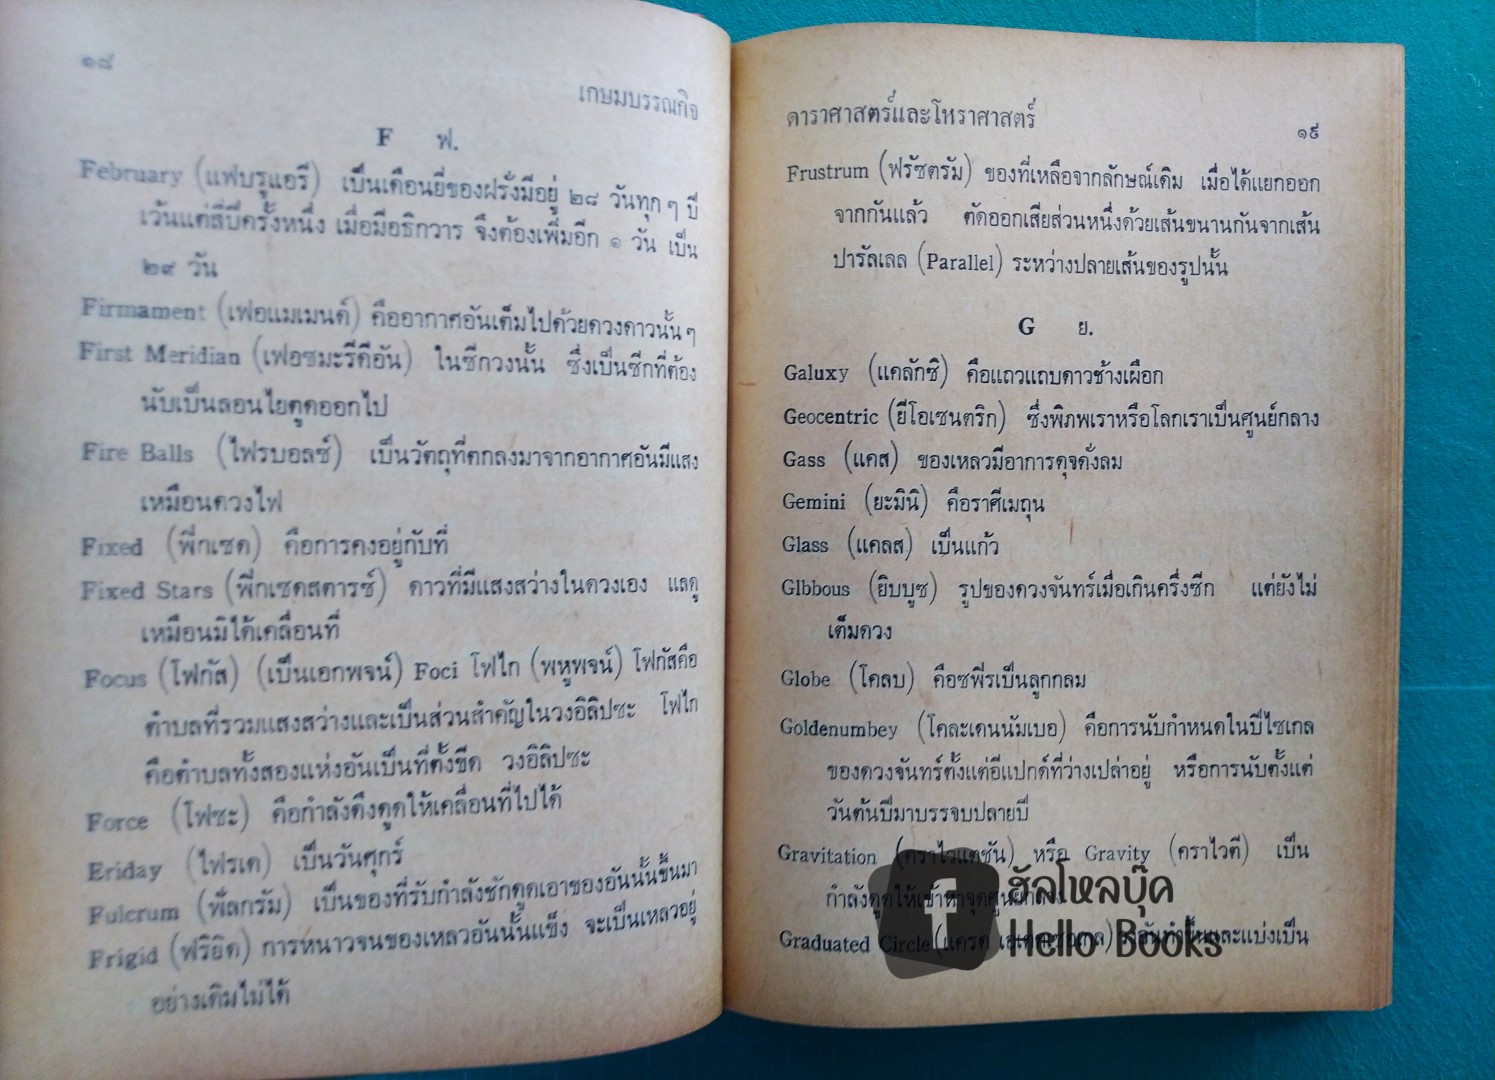 ๑๘
เกษมบรรณกิจ
F ฟ.
February (แฟบรูแอรี) เป็นเดือนยี่ของฝรั่งมีอยู่ ๒๘ วันทุก ๆ ปี
เว้นแต่สี่ปีครั้งหนึ่ง เมื่อมีอธิกวาร จึงต้องเพิ่มอีก ๑ วัน เป็น
๒๙ วัน
Firmament (เฟอแมเมนต์) คืออากาศอันเต็มไปด้วยดวงดาวนั้น ๆ
First Meridian (เฟอซมะรีดีอัน) ในซีกวงนั้น ซึ่งเป็นซีกที่ต้อง
นับเป็นลอนไยตูดออกไป
Fire Balls (ไฟรบอลซ์) เป็นวัตถุที่ตกลงมาจากอากาศอันมีแสง
เหมือนดวงไฟ
Fixed (พีกเซด) คือการคงอยู่กับที่
Fixed Stars (พีกเซดสตารซ์) ดาวที่มีแสงสว่างในดวงเอง แลดู
เหมือนมิได้เคลื่อนที่
Focus (โฟกัส) (เป็นเอกพจน์) Foci โฟไก (พหูพจน์) โฟกัสคือ
ตำบลที่รวมแสงสว่างและเป็นส่วนสำคัญในวงอิลิปซะ โฟไก
คือตำบลทั้งสองแห่งอันเป็นที่ตั้งขีด วงอิลิปซะ
Force (โฟซะ) คือกำลังดึงดูดให้เคลื่อนที่ไปได้
Eriday (ไฟรเด) เป็นวันศุกร์
Fulcrum (พึลกรัม) เป็นของที่รับกำลังชักดูดเอาของอันนั้นขึ้นมา
Frigid (ฟริยิด) การหนาวจนของเหลวอันนั้นแข็ง จะเป็นเหลวอยู่
อย่างเดิมไม่ได้
ดาราศาสตร์และโหราศาสตร์
๑๙
Frustrum (ฟรัซตรัม) ของที่เหลือจากลักษณ์เดิม เมื่อได้แยกออก
จากกันแล้ว ตัดออกเสียส่วนหนึ่งด้วยเส้นขนานกันจากเส้น
ปารัลเลล (Parallel) ระหว่างปลายเส้นของรูปนั้น
G ย.
Galuxy (แคลักซิ) คือแถวแถบดาวช้างเผือก
Geocentric (ยีโอเซนตริก) ซึ่งพิภพเราหรือโลกเราเป็นศูนย์กลาง
Gass (แคส) ของเหลวมีอาการดุจดั่งลม
Gemini (ยะมินิ) คือราศีเมถุน
Glass (แคลส) เป็นแก้ว
Glbbous (ยิบบูซ) รูปของดวงจันทร์เมื่อเกินครึ่งซีก แต่ยังไม่
เต็มดวง
Globe (โคลบ) คือซฟีรเป็นลูกกลม
Goldenumbey (โคละเดนนัมเบอ) คือการนับกำหนดในปีไซเกล
ของดวงจันทร์ตั้งแต่อีแปกต์ที่ว่างเปล่าอยู่ หรือการนับตั้งแต่
วันต้นปีมาบรรจบปลายปี
Gravitation (คราไวแตซัน) หรือ Gravity (คราไวตี) เป็น
กำลังดูดให้เข้าหาจุดศูนย์กลาง
Graduated Circle และแบ่งเป็น
f ฮัลโหลบุ๊ค
Hello Books